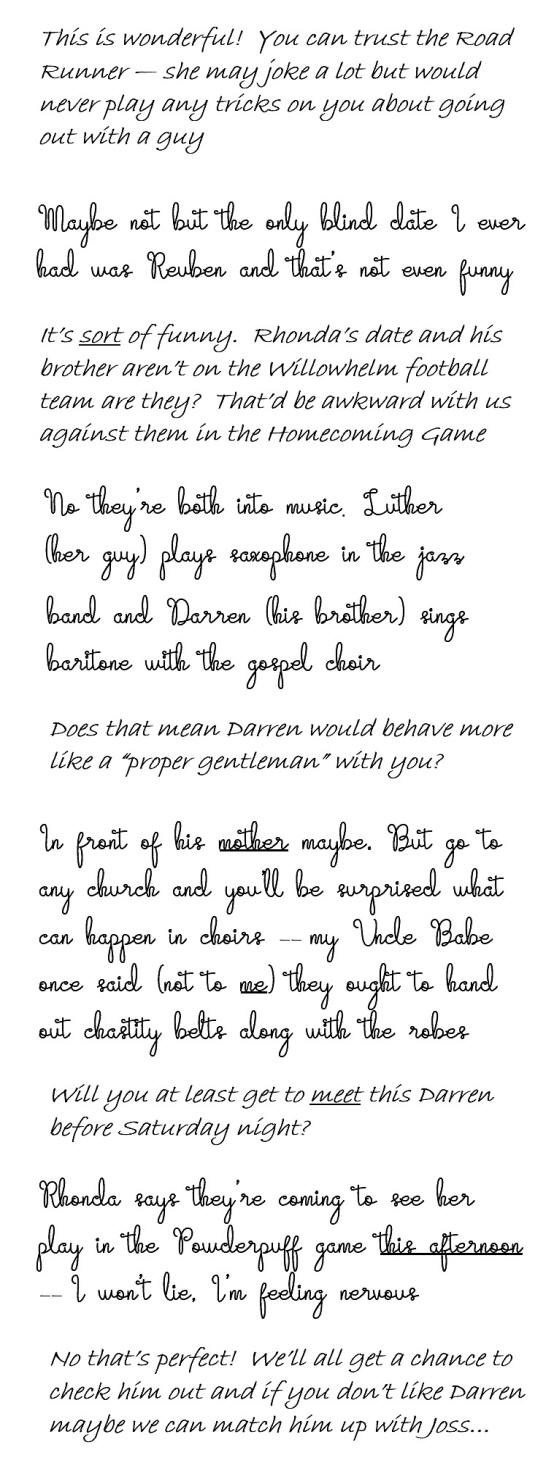 This is wonderful!  You can trust the Road
Runner — she may joke a lot but would
never play any tricks on you about going
out with a guy
Maybe not but the only blind date I ever
had was Reuben and that's not even funny
It's sort of funny.  Rhonda's date and his
brother aren't on the Willowhelm football
team are they?  That'd be awkward with us
against them in the Homecoming Game
No they're both into music. Luther
(her guy) plays saxophone in the jazz
band and Darren (his brother) sings
baritone with the gospel choir
Does that mean Darren would behave more
like a "proper gentleman" with you?
In front of his mother maybe. But go to
any church and you'll be surprised what
can happen in choirs -- my Uncle Babe
once said (not to me) they ought to hand
out chastity belts along with the robes
Will you at least get to meet this Darren
before Saturday night?
Rhonda says they're coming to see her
play in the Powderpuff game this afternoon
-- I won't lie, I'm feeling nervous
No that's perfect!  We'll all get a chance to
check him out and if you don't like Darren
maybe we can match him up with Joss...